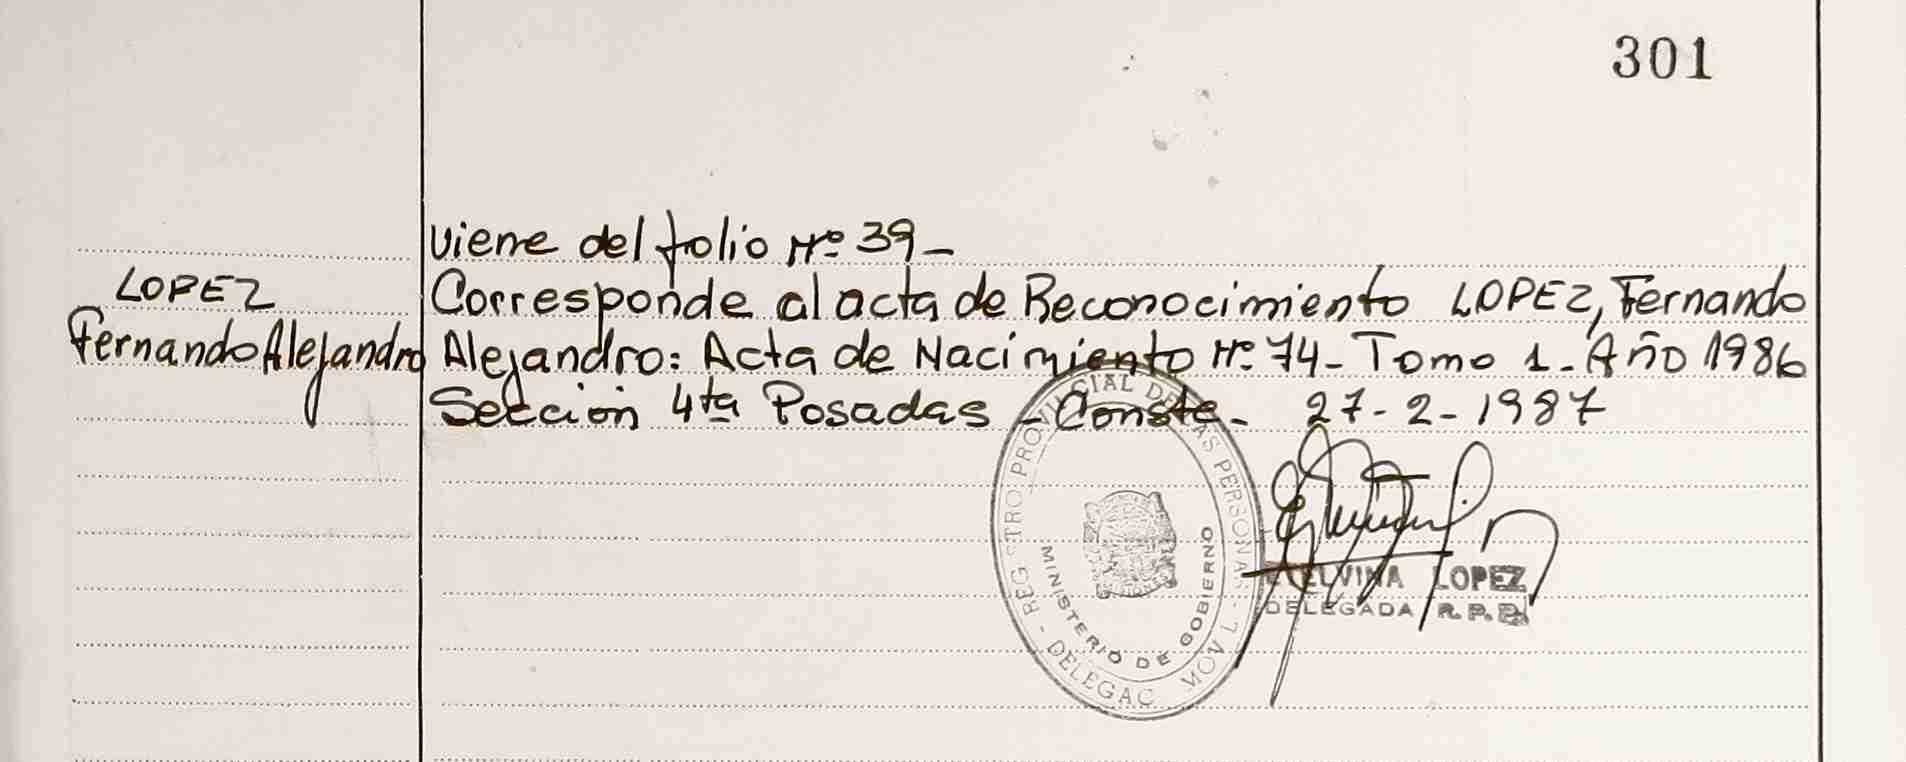 301
viene del folio Nº 39-
LOPEZ
Fernando Alejandro
Corresponde al acta de Reconocimiento LOPEZ, Fernando
Alejandro: Acta de Nacimiento Nº 74- Tomo 1- Año 1986
Sección 4ta Posadas - Conste- 27-2-1987
REG STRO PROVINCIAL DE LAS PERSONAS - DELEGAC MOV L -
MINISTERIO DE GOBIERNO
ETELVINA LOPEZ
DELEGADA R.P.P.